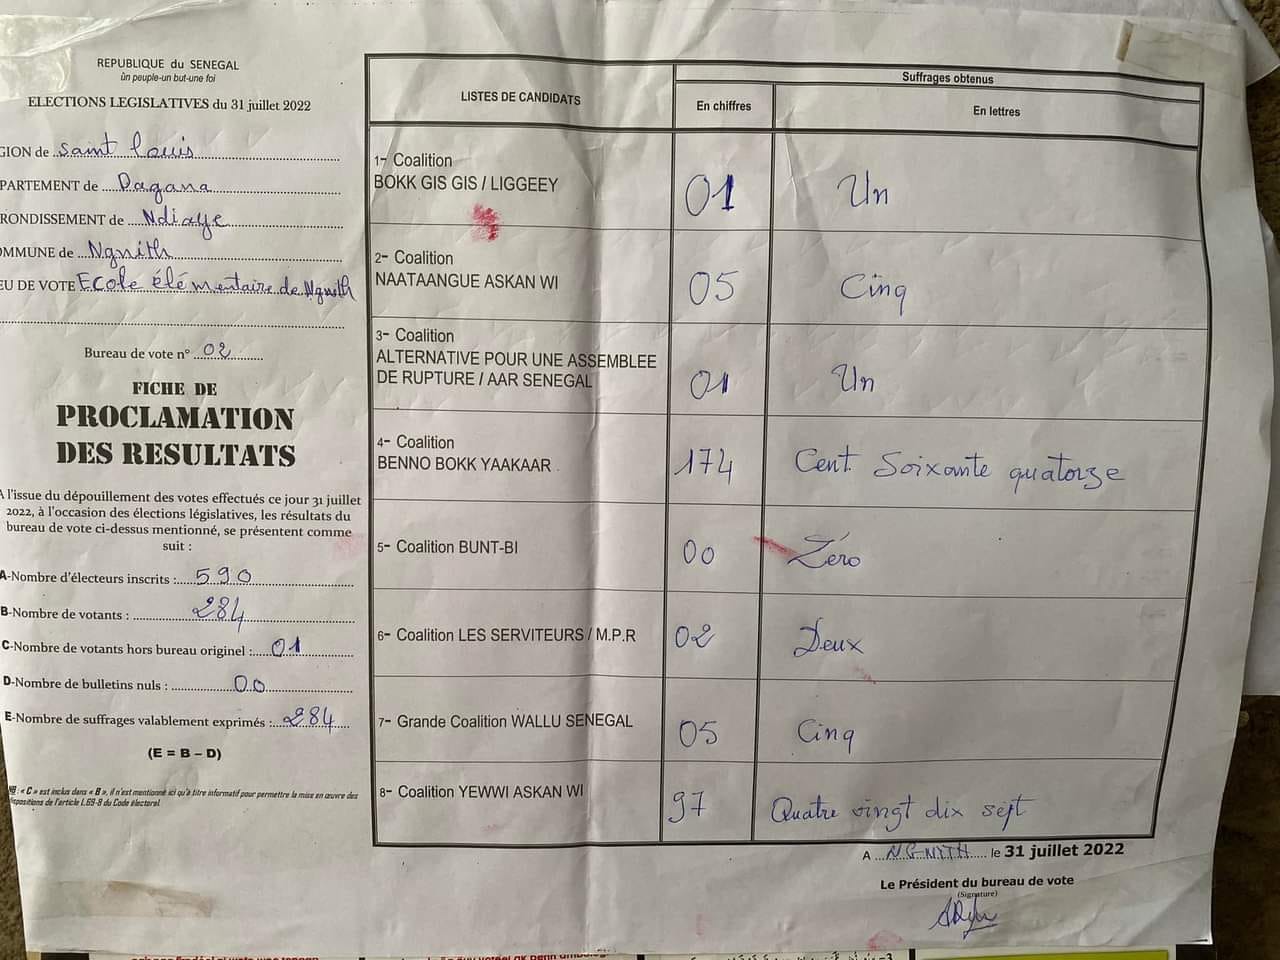 REPUBLIQUE du SENEGAL
ùn peuple-un but-une foi
ELECTIONS LEGISLATIVES du 31 juillet 2022
GION de Saint Louis
PARTEMENT de Dagana
RONDISSEMENT de Ndiaye
OMMUNE de Ngnith
EU DE VOTE Ecole élémentaire de Ngnith
Bureau de vote n° 02
FICHE DE
PROCLAMATION
DES RESULTATS
A l'issue du dépouillement des votes effectués ce jour 31 juillet
2022, à l'occasion des élections législatives, les résultats du
bureau de vote ci-dessus mentionné, se présentent comme
suit :
A-Nombre d'électeurs inscrits : 590
B-Nombre de votants : 284
C-Nombre de votants hors bureau originel : 01
D-Nombre de bulletins nuls : 00
E-Nombre de suffrages valablement exprimés : 284
(E = B – D)
NB : « C » est inclus dans « B », il n'est mentionné ici qu'à titre informatif pour permettre la mise en œuvre des
dispositions de l'article L.69-8 du Code électoral
LISTES DE CANDIDATS
Suffrages obtenus
En chiffres
En lettres
1- Coalition
BOKK GIS GIS / LIGGEEY
01
Un
2- Coalition
NAATAANGUE ASKAN WI
05
Cinq
3- Coalition
ALTERNATIVE POUR UNE ASSEMBLEE
DE RUPTURE / AAR SENEGAL
01
Un
4- Coalition
BENNO BOKK YAAKAAR
174
Cent Soixante quatorze
5- Coalition BUNT-BI
00
Zéro
6- Coalition LES SERVITEURS / M.P.R
02
Deux
7- Grande Coalition WALLU SENEGAL
05
Cinq
8- Coalition YEWWI ASKAN WI
97
Quatre vingt dix sept
A NGNITH le 31 juillet 2022
Le Président du bureau de vote
(Signature)